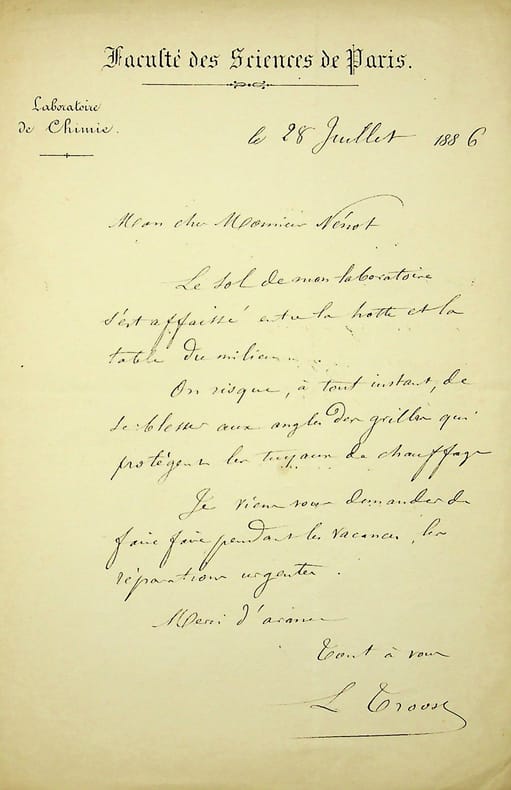 Faculté des Sciences de Paris.
Laboratoire
de Chimie.
le 28 Juillet 1886
Mon cher Monsieur Nénot
Le sol de mon laboratoire
s'est affaissé entre la hotte et la
table du milieu
On risque, à tout instant, de
se blesser aux angles des grilles qui
protégent les tuyaux de chauffage
Je viens vous demander de
faire faire pendant les vacances, les
réparations urgentes.
Merci d'avance
Tout à vous
L Troost